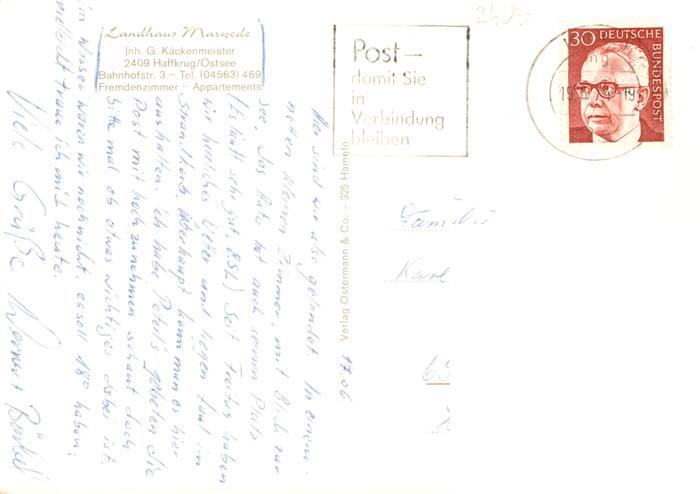 Landhaus Marwede
Inh. G. Käckenmeister
2409 Haffkrug/Ostsee
Bahnhofstr. 3 – Tel. (04563) 469
Fremdenzimmer – Appartements
2409
Post –
damit Sie
in
Verbindung
bleiben
30 DEUTSCHE
BUNDESPOST
Verlag Ostermann & Co. – 325 Hameln
17.06
Hier sind wir also gelandet. In einem
netten kleinen Zimmer, mit Blick zur
see. Das Auto hat auch seinen Platz
(Es läuft sehr gut, 8,5L) Seit Freitag haben
wir herrliches Wetter und liegen faul im
Strandkorb. Überhaupt kann man es hier
aushalten. ich habe Peteri's gebeten die
Post mit hoch zu nehmen schaut doch
Bitte mal ob etwas wichtiges dabei ist.
im Wasser waren wir noch nicht. es soll 18° haben.
vielleicht traue ich mich heute.
Viele Grüße Werner + Bärbel
Familie
Karl